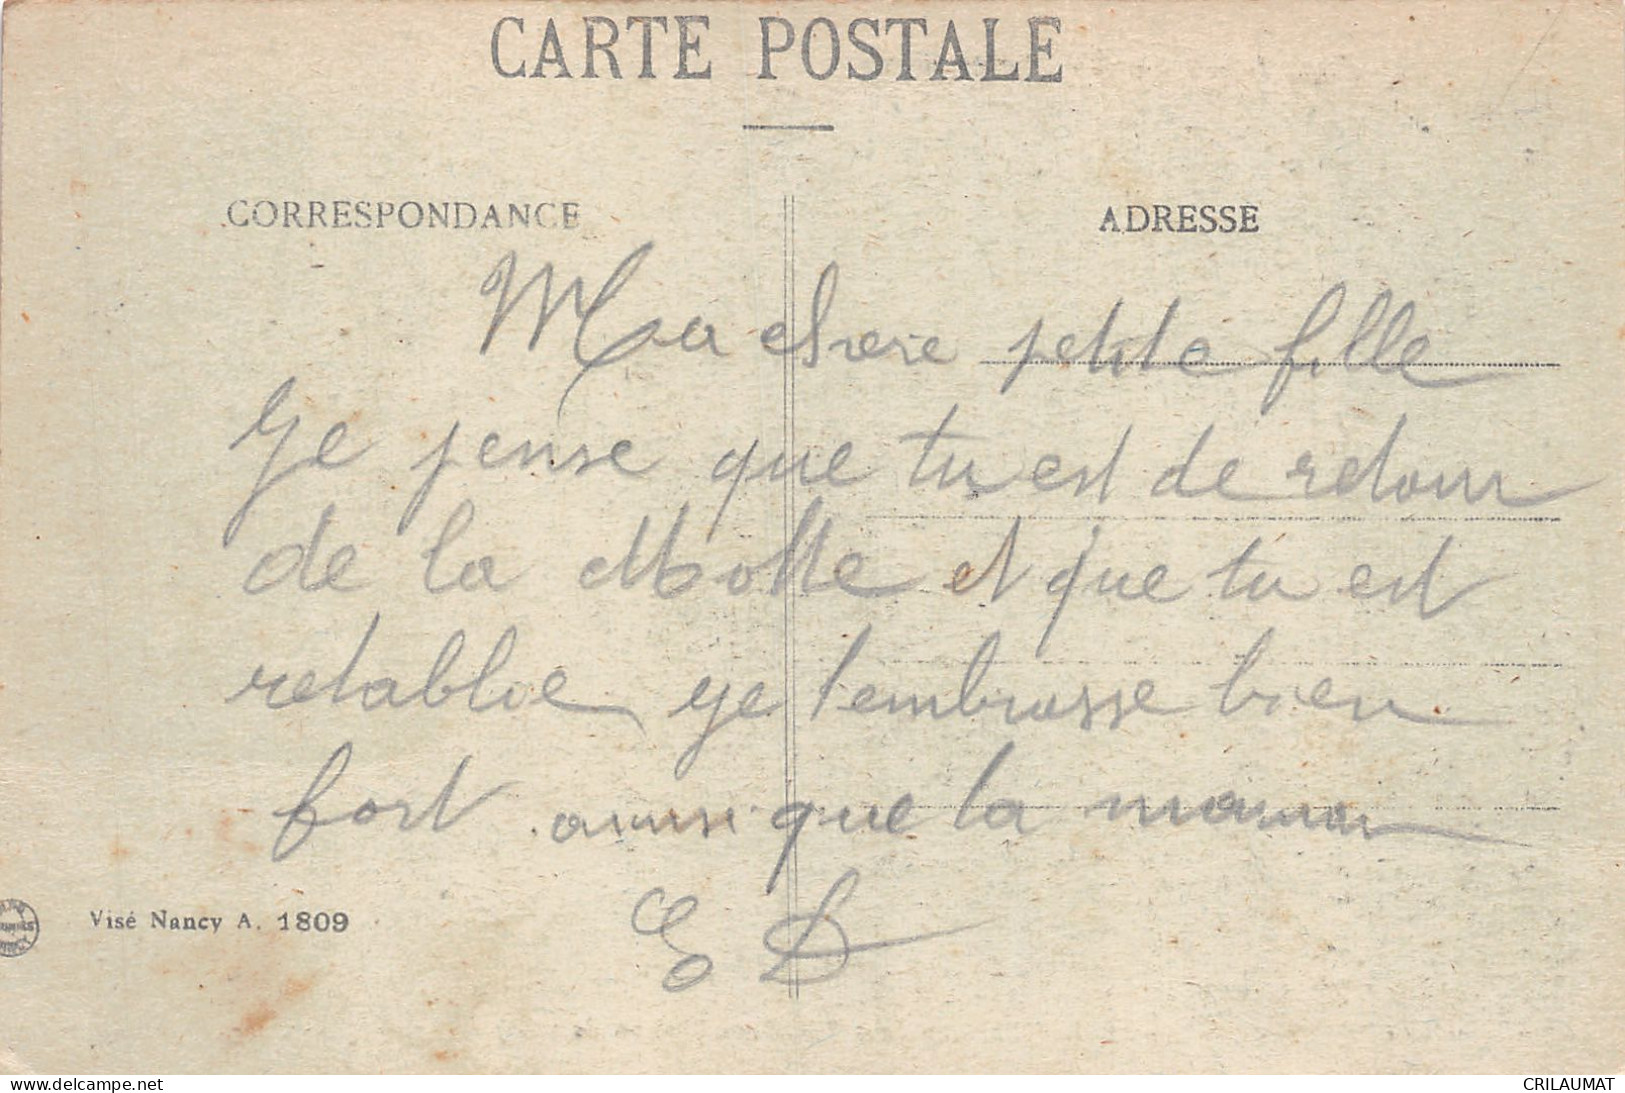 CARTE POSTALE
CORRESPONDANCE
ADRESSE
Ma chere petite fille
Je pense que tu est de retour
de la Motte et que tu est
retablie je t'embrasse bien
fort ainsi que ta maman
E D
Visé Nancy A. 1809
www.delcampe.net
CRILAUMAT